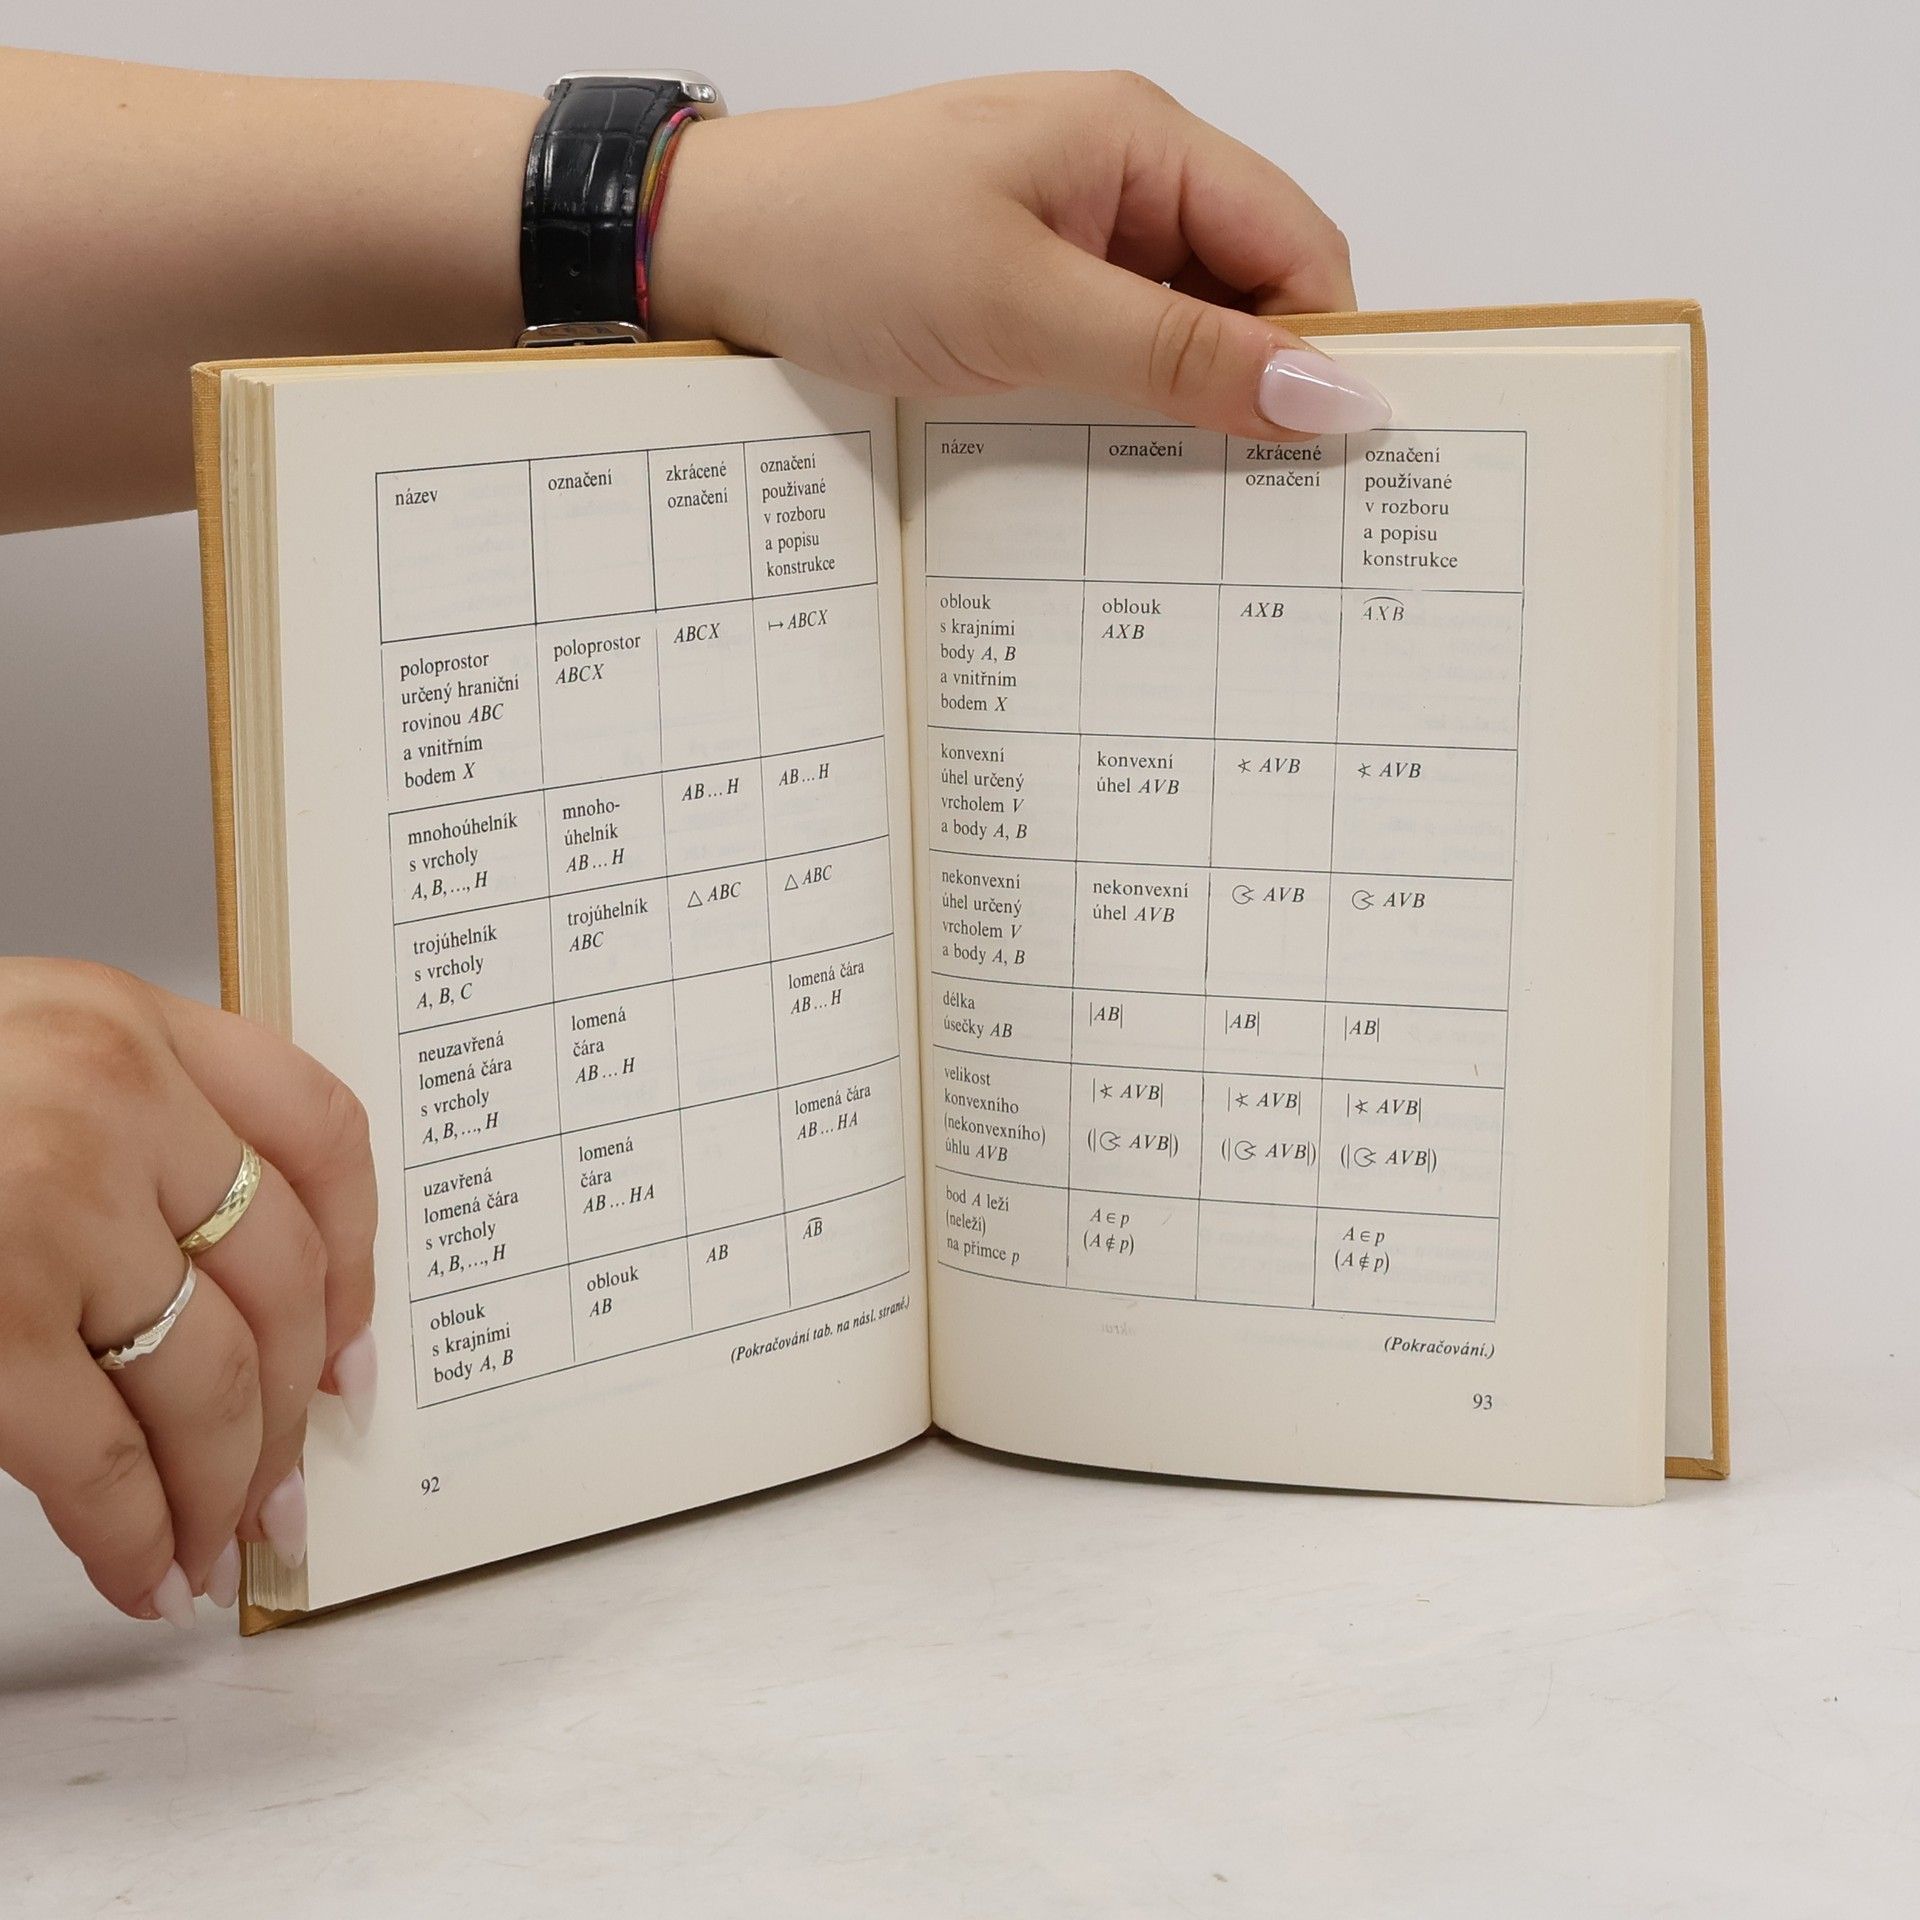 název
označení
zkrácené
označení
označení
používané
v rozboru
a popisu
konstrukce
poloprostor
určený hraniční
rovinou ABC
a vnitřním
bodem X
poloprostor
ABCX
ABCX
↦ ABCX
mnohoúhelník
s vrcholy
A, B,..., H
mnoho-
úhelník
AB...H
AB...H
AB...H
trojúhelník
s vrcholy
A, B, C
trojúhelník
ABC
△ ABC
△ ABC
neuzavřená
lomená čára
s vrcholy
A, B,..., H
lomená
čára
AB...H
lomená čára
AB...H
uzavřená
lomená čára
s vrcholy
A, B,..., H
lomená
čára
AB...HA
lomená čára
AB...HA
oblouk
s krajními
body A, B
oblouk
AB
AB
A͡B
(Pokračování tab. na násl. straně.)
92
název
označení
zkrácené
označení
označení
používané
v rozboru
a popisu
konstrukce
oblouk
s krajními
body A, B
a vnitřním
bodem X
oblouk
AXB
AXB
A͡X͡B
konvexní
úhel určený
vrcholem V
a body A, B
konvexní
úhel AVB
∢ AVB
∢ AVB
nekonvexní
úhel určený
vrcholem V
a body A, B
nekonvexní
úhel AVB
AVB
AVB
délka
úsečky AB
|AB|
|AB|
|AB|
velikost
konvexního
(nekonvexního)
úhlu AVB
|∢ AVB|
(| AVB|)
|∢ AVB|
(| AVB|)
|∢ AVB|
(| AVB|)
bod A leží
(neleží)
na přímce p
A ∈ p
(A ∉ p)
A ∈ p
(A ∉ p)
(Pokračování.)
93